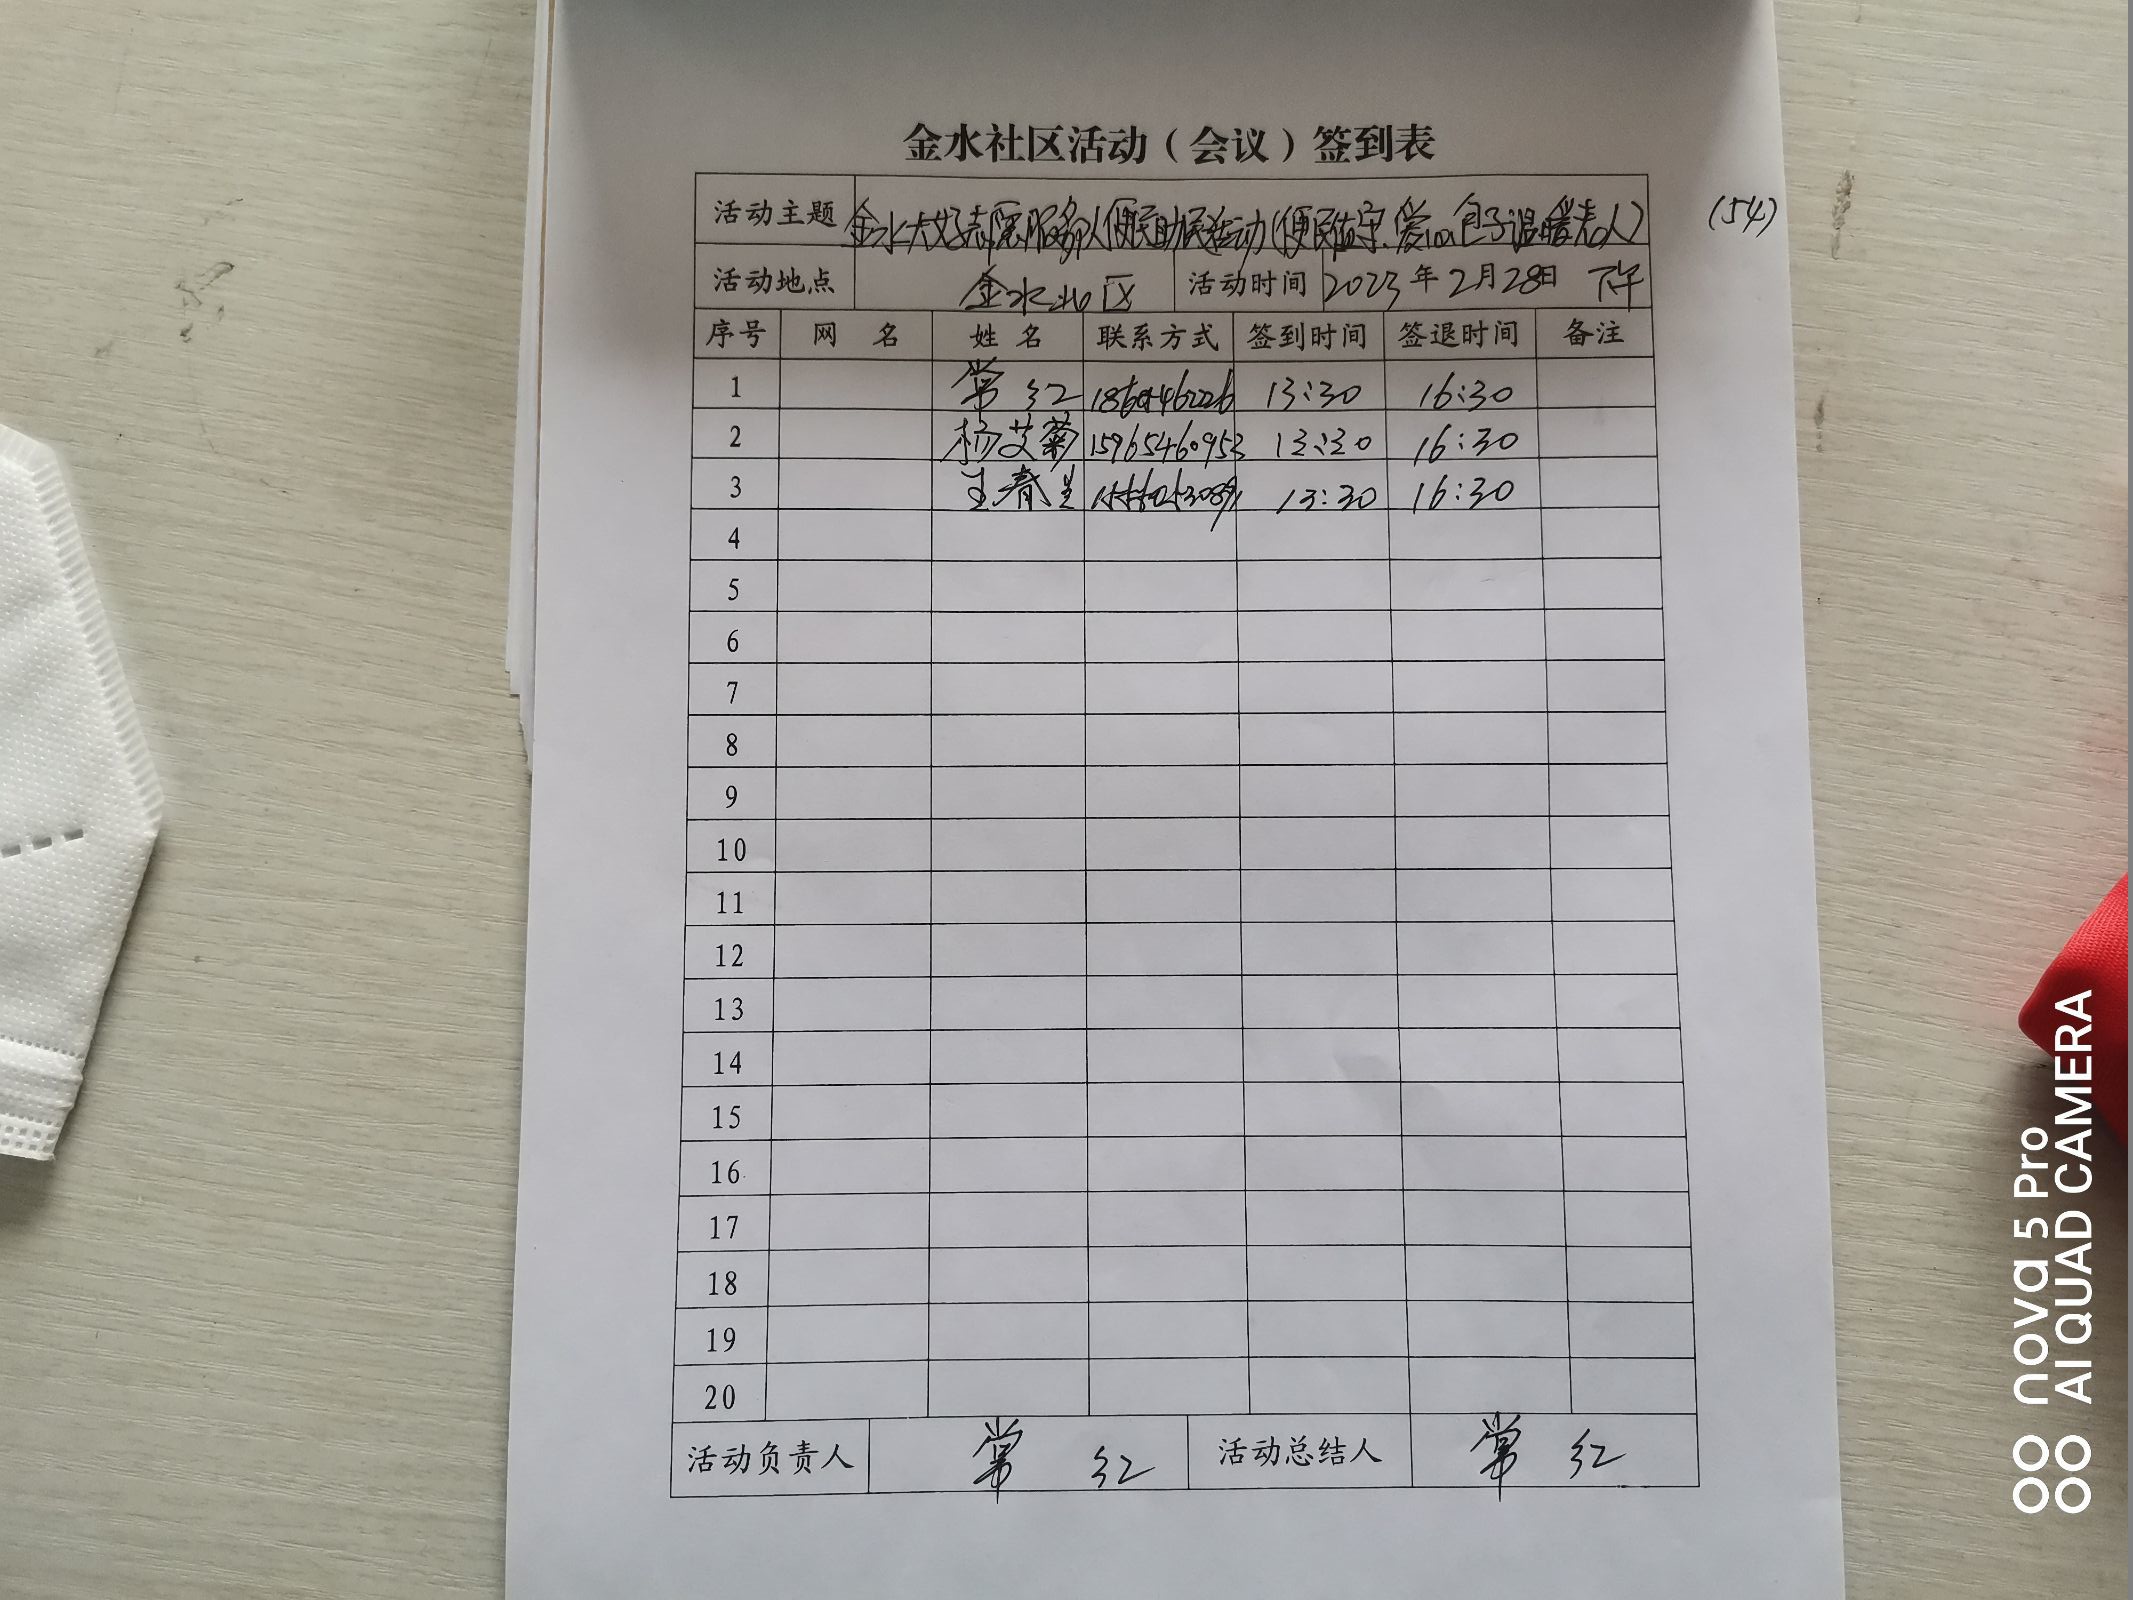 金水社区活动（会议）签到表
活动主题 金水大好志愿服务队便民助民活动(便民值守、爱心包子温暖老人) (54)
活动地点 金水北区 活动时间 2023年2月28日 下午
序号 网 名 姓 名 联系方式 签到时间 签退时间 备注
1 常 红 13:30 16:30
2 杨艾菊 15965460953 13:30 16:30
3 王春兰 13:30 16:30
4
5
6
7
8
9
10
11
12
13
14
15
16
17
18
19
20
活动负责人 常 红 活动总结人 常 红
nova 5 Pro
AI QUAD CAMERA